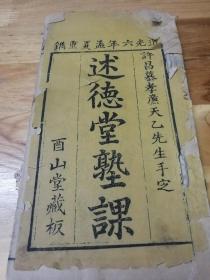 道光六年孟夏重鐫
許昌孝廉天乙先生手定
述德堂塾課
酉山堂藏板